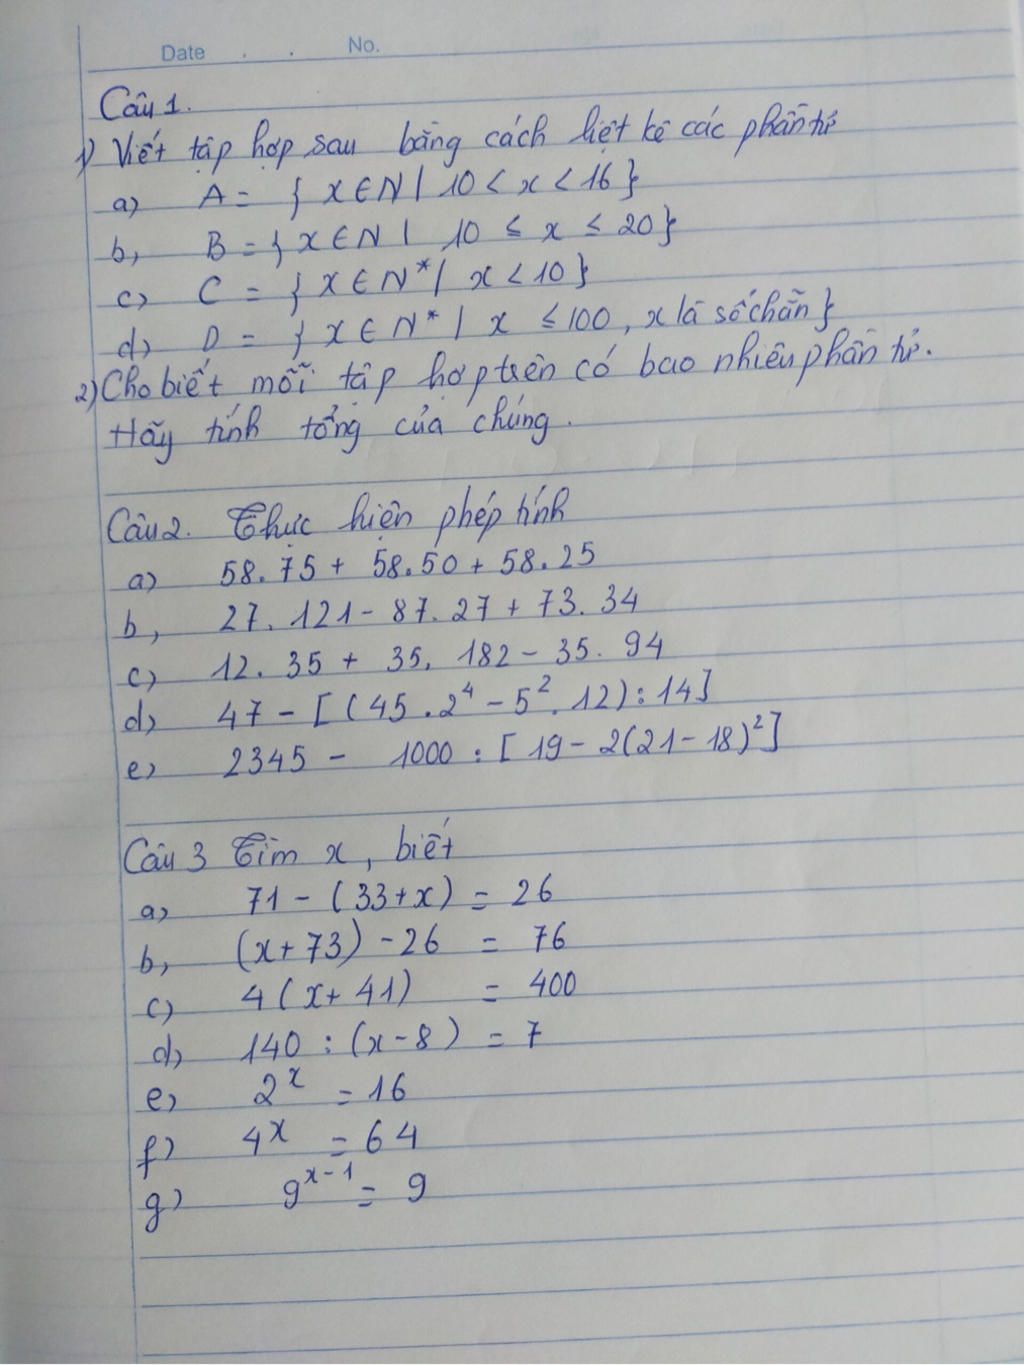 Date . . No.
Câu 1.
1) Viết tập hợp sau bằng cách liệt kê các phần tử
a) A = { x ∈ N | 10 < x < 16 }
b, B = { x ∈ N | 10 ≤ x ≤ 20 }
c) C = { x ∈ N* | x < 10 }
d) D = { x ∈ N* | x ≤ 100, x là số chẵn }
2) Cho biết mỗi tập hợp trên có bao nhiêu phần tử.
Hãy tính tổng của chúng.
Câu 2. Thực hiện phép tính
a) 58.75 + 58.50 + 58.25
b, 27.121 - 87.27 + 73.34
c) 12.35 + 35.182 - 35.94
d) 47 - [(45.2⁴ - 5².12) : 14]
e) 2345 - 1000 : [19 - 2(21 - 18)²]
Câu 3 Tìm x, biết
a) 71 - (33 + x) = 26
b, (x + 73) - 26 = 76
c) 4(x + 41) = 400
d) 140 : (x - 8) = 7
e) 2ˣ = 16
f) 4ˣ = 64
g) 9ˣ⁻¹ = 9